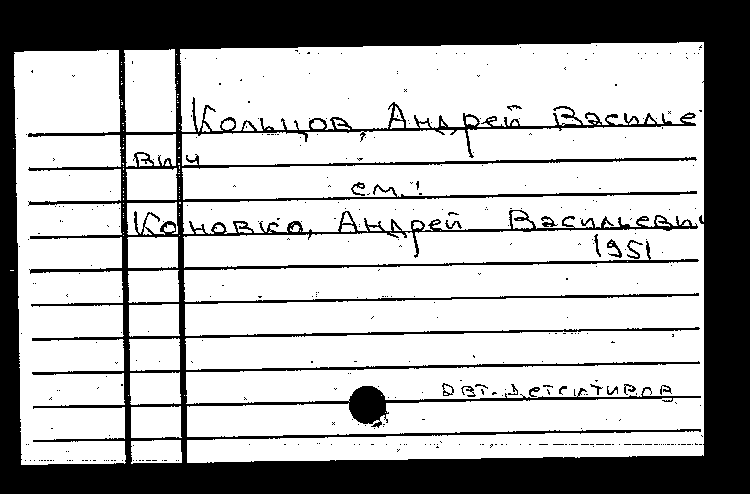 Кольцов, Андрей Василье
вич
см.:
Коновко, Андрей Васильевич
1951
авт. детективов